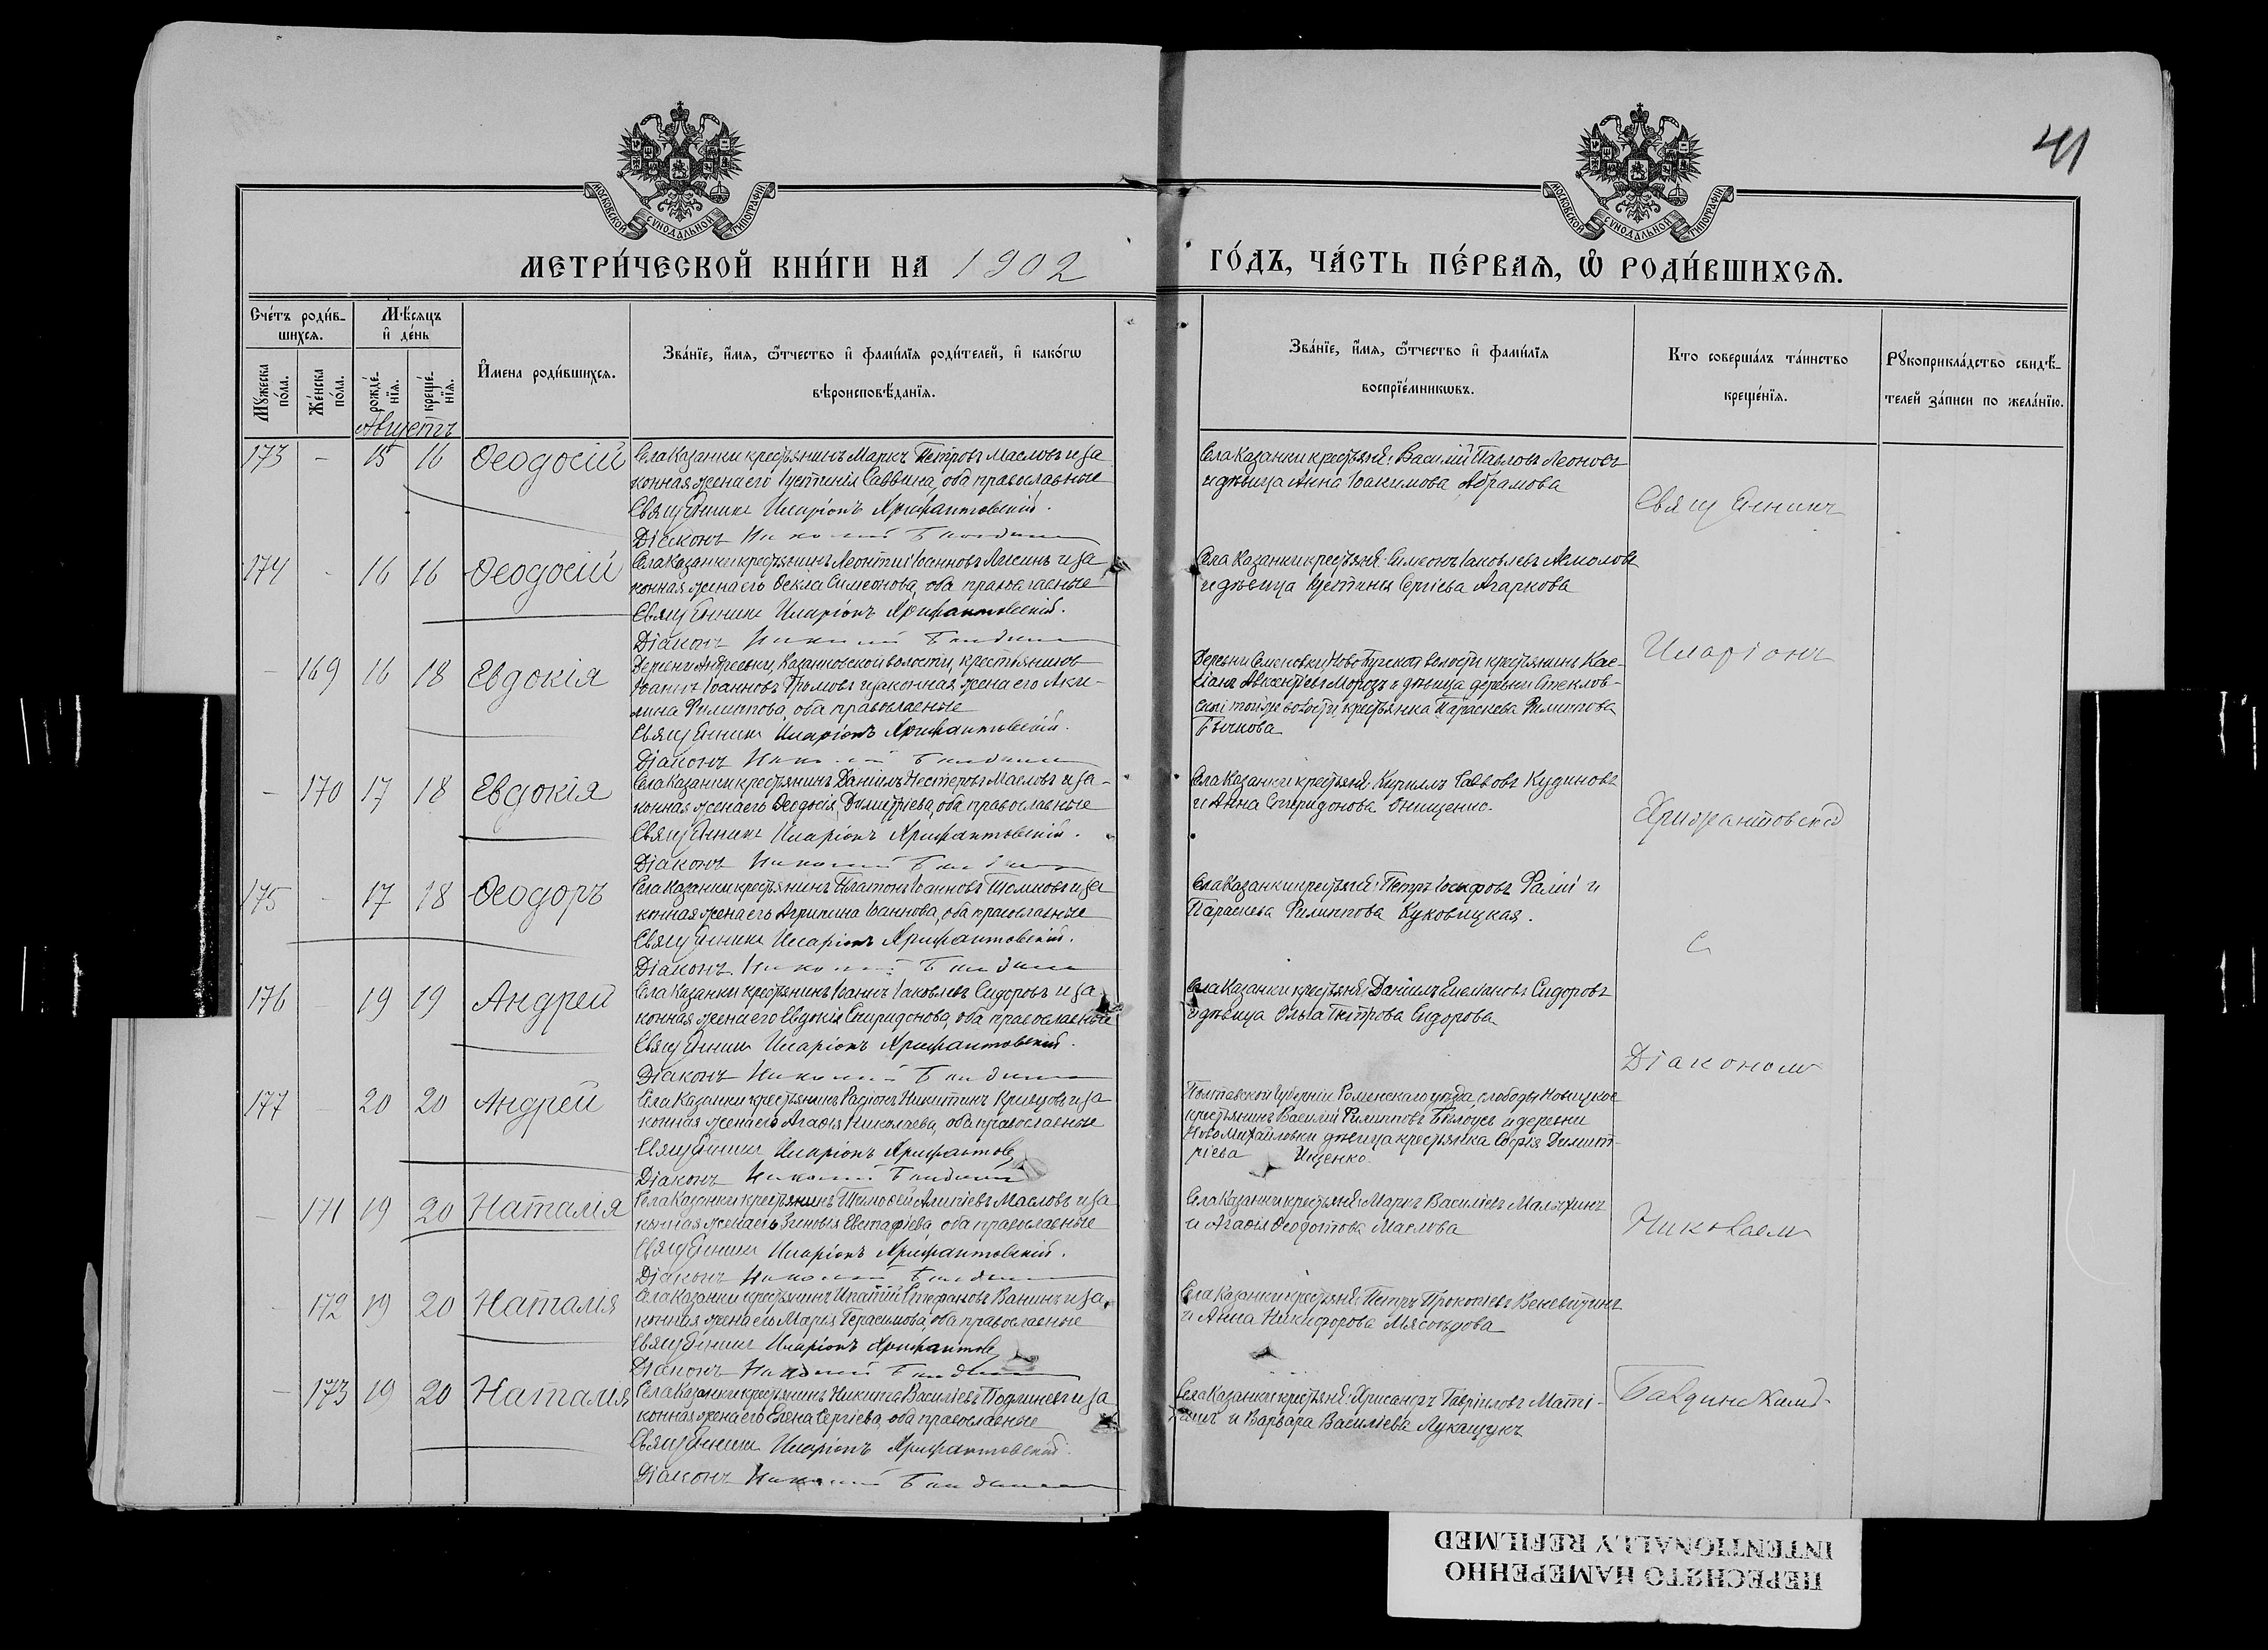 41
МОСКОВСКОЙ СѴНОДАЛЬНОЙ ТИПОГРАФІИ
МОСКОВСКОЙ СѴНОДАЛЬНОЙ ТИПОГРАФІИ
МЕТРИ́ЧЕСКОЙ КНИ́ГИ НА 1902
ГО́ДЪ, ЧА́СТЬ ПЕ́РВАѦ, Ѽ РОДИ́ВШИХСѦ.
Сче́тъ роди́в-
шихсѧ.
Мѣ́сѧцъ
и҆ де́нь
Мꙋ́жеска
по́ла.
Же́нска
по́ла.
рожде́-
нїѧ.
креще́-
нїѧ.
И҆мена роди́вшихсѧ.
Зва́нїе, и҆́мѧ, ѻ҆́тчество и҆ фами́лїѧ роди́телей, и҆ како́гѡ
вѣроисповѣ́данїѧ.
Зва́нїе, и҆́мѧ, ѻ҆́тчество и҆ фами́лїѧ
воспрїе́мникѡвъ.
Кто соверша́лъ та́инство
креще́нїѧ.
Рꙋкоприкла́дство свидѣ́-
телей за́писи по жела́нїю.
Августъ
173 - 15 16 Ѳеодосій
Села Казанки крестьянинъ Маркъ Петровъ Масловъ и за
конная жена его Іустинія Саввина, оба православные
Священникъ Иларіонъ Хрисантовскій.
Діаконъ Николай
Села Казанки крестьяне: Василій Павловъ Леоновъ
и дѣвица Анна Іоакимова Абрамова
174 - 16 16 Ѳеодосій
Села Казанки крестьянинъ Леонтій Іоанновъ Лысинъ и за
конная жена его Ѳекла Симеонова, оба православные
Священникъ Иларіонъ Хрисантовскій.
Діаконъ Николай
Села Казанки крестьяне: Симеонъ Іаковлевъ
и дѣвица Іустинія Сергіева Агаркова
- 169 16 18 Евдокія
Деревни Андреевки, Казанковской волости, крестьянинъ
Іоаннъ Іоанновъ и законная жена его Аки-
лина Филиппова, оба православные
Священникъ Иларіонъ Хрисантовскій.
Діаконъ Николай
Деревни Семеновки Ново Бугской волости крестьянинъ Кас-
сіанъ Авксентіевъ Морозъ и дѣвица деревни
той же волости, крестьянка Параскева Филиппова
Бычкова
- 170 17 18 Евдокія
Села Казанки крестьянинъ Даніилъ Нестеровъ Масловъ и за-
конная жена его Ѳеодосія Димитріева, оба православные
Священникъ Иларіонъ Хрисантовскій.
Діаконъ Николай
Села Казанки крестьяне: Кириллъ Саввовъ Кудиновъ
и Анна Спиридонова Онищенко.
175 - 17 18 Ѳеодоръ
Села Казанки крестьянинъ Платонъ Іоанновъ и за
конная жена его Агрипина Іоаннова, оба православные
Священникъ Иларіонъ Хрисантовскій.
Діаконъ Николай
Села Казанки крестьяне: Петръ Іосифовъ и
Параскева Филиппова Куковицкая.
176 - 19 19 Андрей
Села Казанки крестьянинъ Іоаннъ Іаковлевъ Сидоровъ и за
конная жена его Евдокія Спиридонова, оба православные
Священникъ Иларіонъ Хрисантовскій.
Діаконъ Николай
Села Казанки крестьяне: Даніилъ Сидоровъ
и дѣвица Ольга Петрова Сидорова
177 - 20 20 Андрей
Села Казанки крестьянинъ Родіонъ Никитинъ Кривцовъ и за
конная жена его Агаѳія Николаева, оба православные
Священникъ Иларіонъ
Діаконъ Николай
Полтавской губерніи Роменскаго уѣзда, слободы
крестьянинъ Василій Филипповъ Бѣлоусъ и деревни
Ново Михайловки дѣвица крестьянка Софія Димит-
ріева Ищенко.
- 171 19 20 Наталія
Села Казанки крестьянинъ Тимоѳей Масловъ и за
конная жена его Зиновія Евстафіева, оба православные
Священникъ Иларіонъ Хрисантовскій.
Діаконъ Николай
Села Казанки крестьяне: Маркъ Василіевъ Малыхинъ
и Агаѳія Ѳеодотова Маслова
- 172 19 20 Наталія
Села Казанки крестьянинъ Ипатій Стефановъ Ванинъ и за
конная жена его Марія Герасимова, оба православные
Священникъ Иларіонъ
Діаконъ Николай
Села Казанки крестьяне: Петръ Прокопіевъ Веневитинъ
и Анна Никифорова Мясоѣдова
- 173 19 20 Наталія
Села Казанки крестьянинъ Никита Василіевъ и за
конная жена его Елена Сергіева, оба православные
Священникъ Иларіонъ Хрисантовскій.
Діаконъ Николай
Села Казанки крестьяне: Хрисанфъ Гавріиловъ
и Варвара Василіева Лукащукъ
Священникъ
Иларіонъ
Хрисантовскій
съ
Діакономъ
Николаемъ
ПЕРЕСНЯТО НАМЕРЕННО
INTENTIONALLY REFILMED